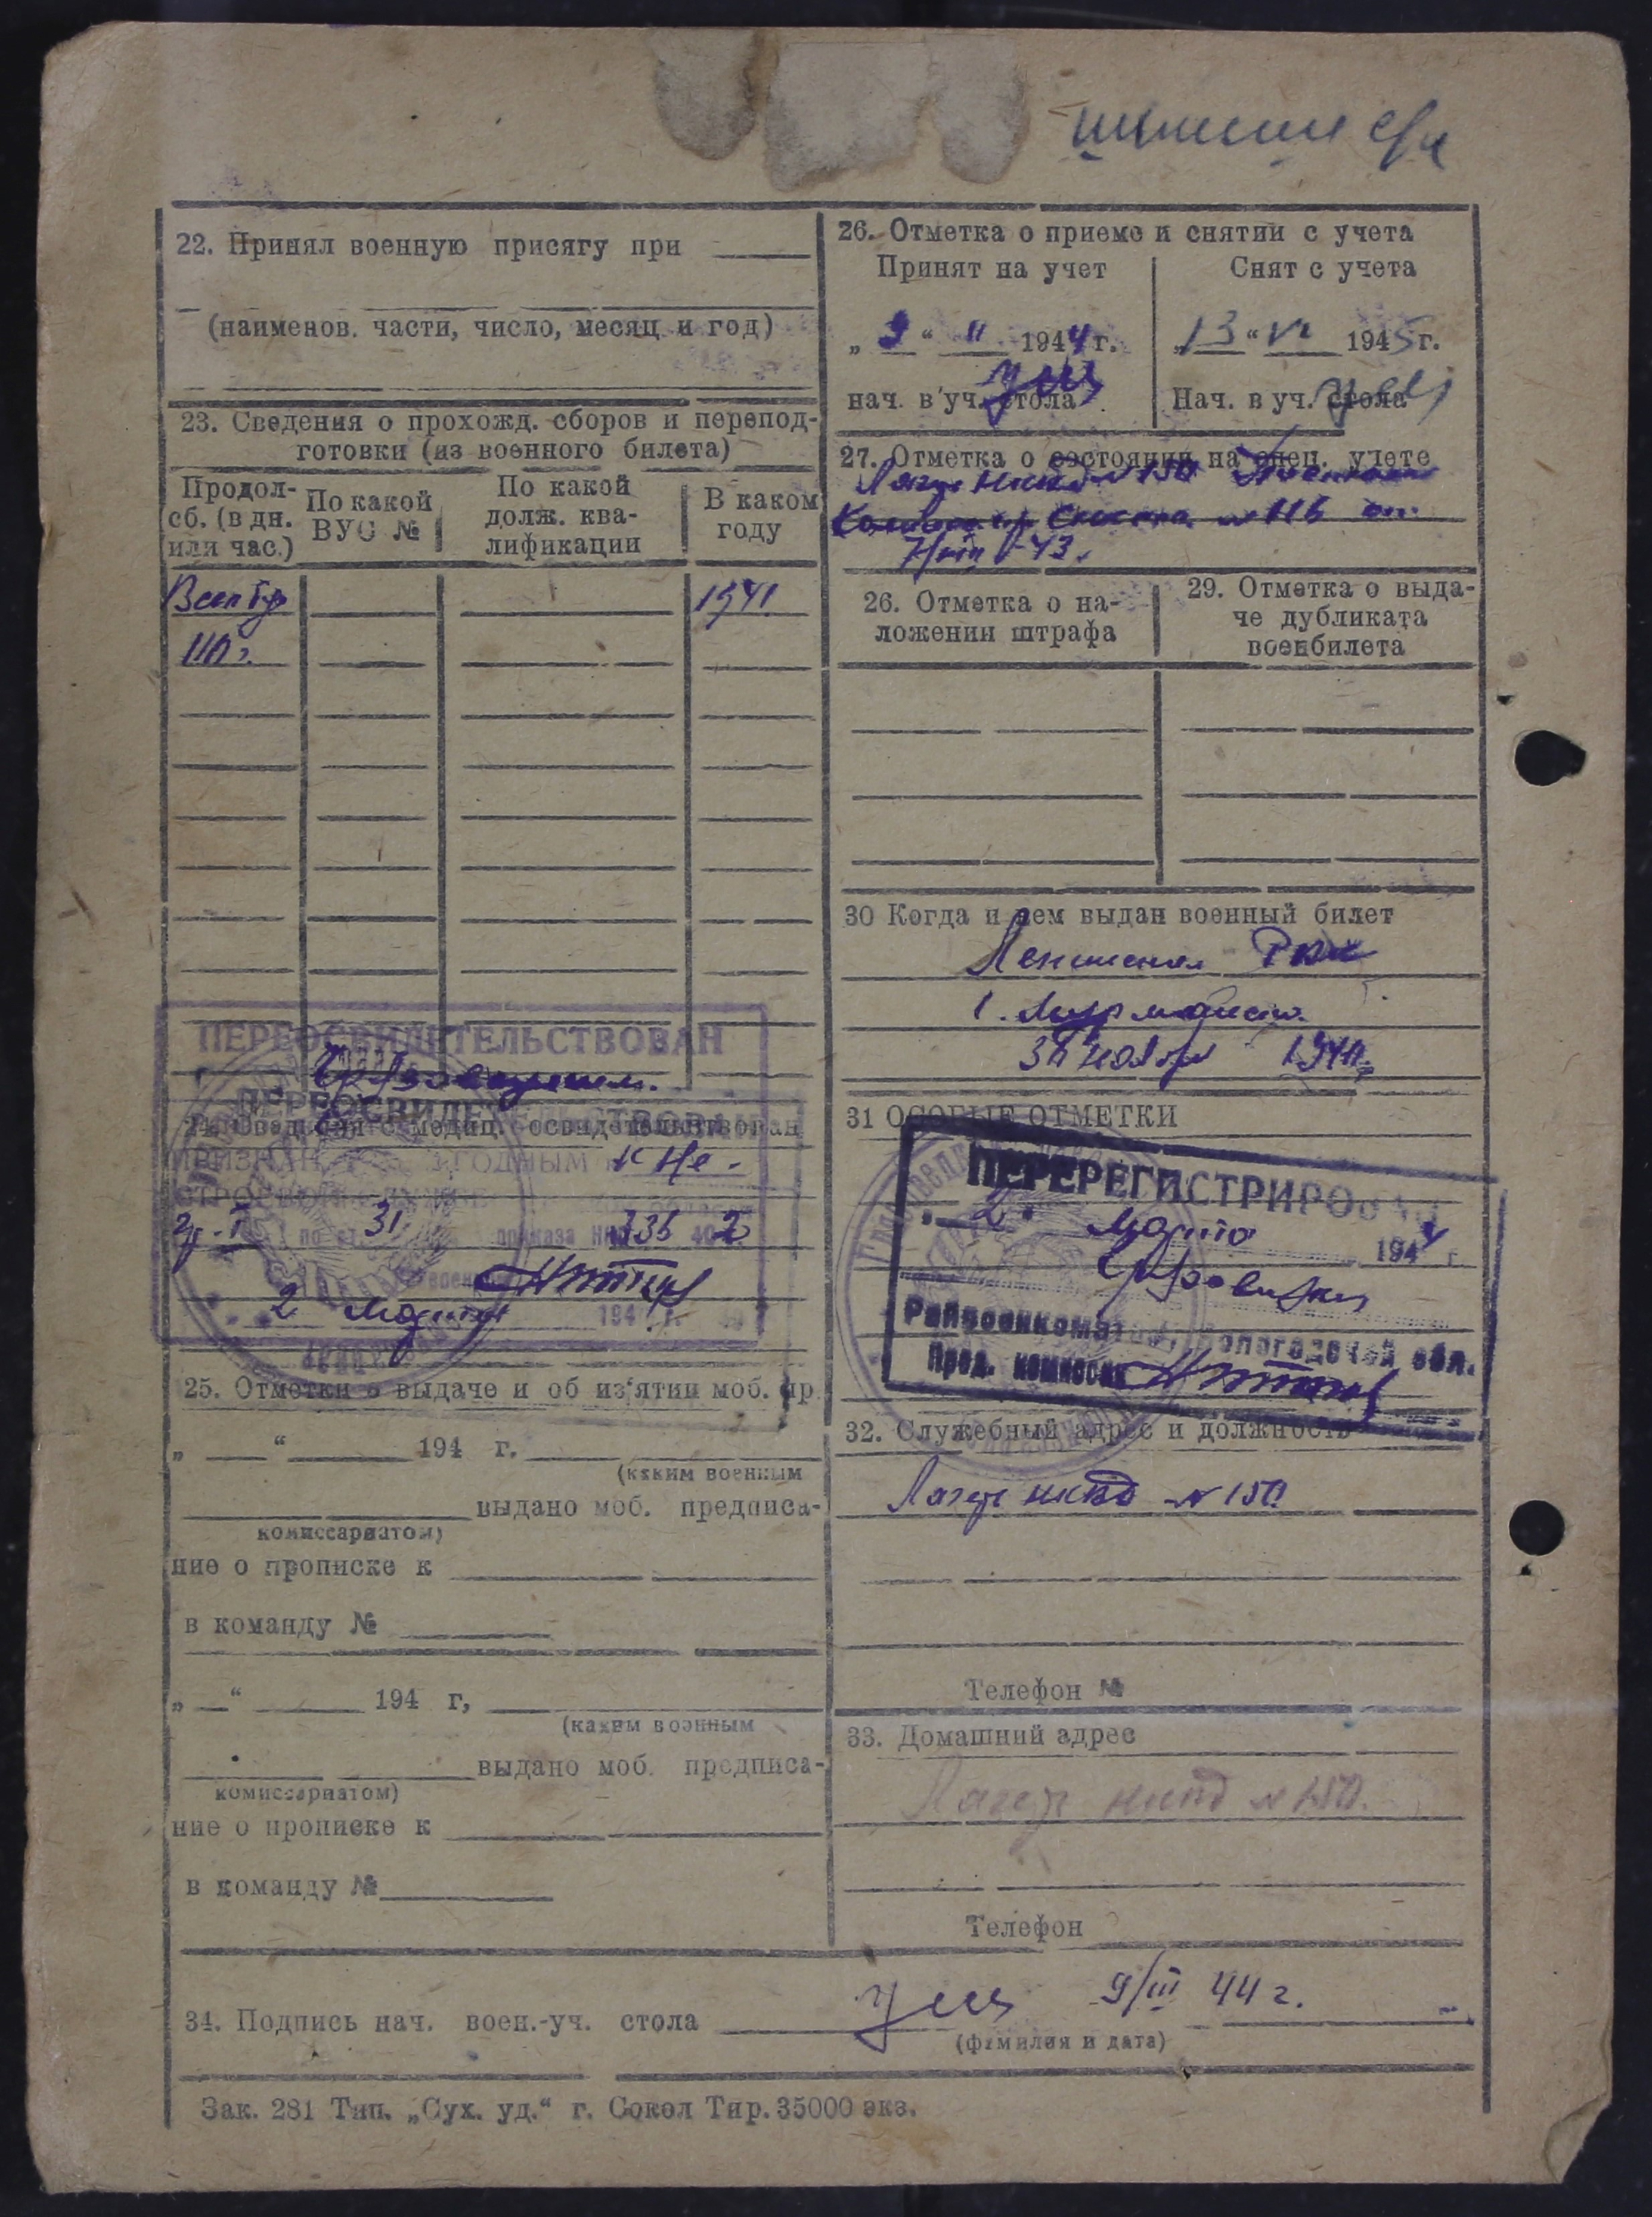 22. Принял военную присягу при
(наименов. части, число, месяц и год)
23. Сведения о прохожд. сборов и перепод-
готовки (из военного билета)
Продол-
сб. (в дн.
или час.)
По какой
ВУС №
По какой
долж. ква-
лификации
В каком
году
1941
110 г.
ПЕРЕОСВИДЕТЕЛЬСТВОВАН
ПЕРЕОСВИДЕТЕЛЬСТВОВАН
24. Сведения о медиц. освидетельствован
ПРИЗНАН ГОДНЫМ к не-
по ст. 31 приказа НКО 336 42
2 Марта 194 г.
25. Отметки о выдаче и об из'ятии моб. пр.
„ “ 194 г.
(каким военным
выдано моб. предписа-
комиссариатом)
ние о прописке к
в команду №
„ “ 194 г,
(каким военным
выдано моб. предписа-
комиссариатом)
ние о прописке к
в команду №
26. Отметка о приеме и снятии с учета
Принят на учет
„ 9 “ II 1944 г.
нач. в уч. стола
Снят с учета
„13“ VI 1945 г.
Нач. в уч. стола
27. Отметка о состоянии на спец. учете
Лагерь НКВД №150
26. Отметка о на-
ложении штрафа
29. Отметка о выда-
че дубликата
военбилета
30 Когда и кем выдан военный билет
Ленинская РВК
г. Мурманск
1941
31 ОСОБЫЕ ОТМЕТКИ
ПЕРЕРЕГИСТРИРОВАН
„2“ Марта 1944 г.
Грязовецким
Райвоенкоматом, Вологодской обл.
Пред. комиссии
32. Служебный адрес и должность
Лагерь НКВД №150
Телефон №
33. Домашний адрес
Лагерь НКВД №150.
Телефон
34. Подпись нач. воен.-уч. стола 9/III 44 г.
(фамилия и дата)
Зак. 281 Тип. „Сух. уд.“ г. Сокол Тир. 35000 экз.